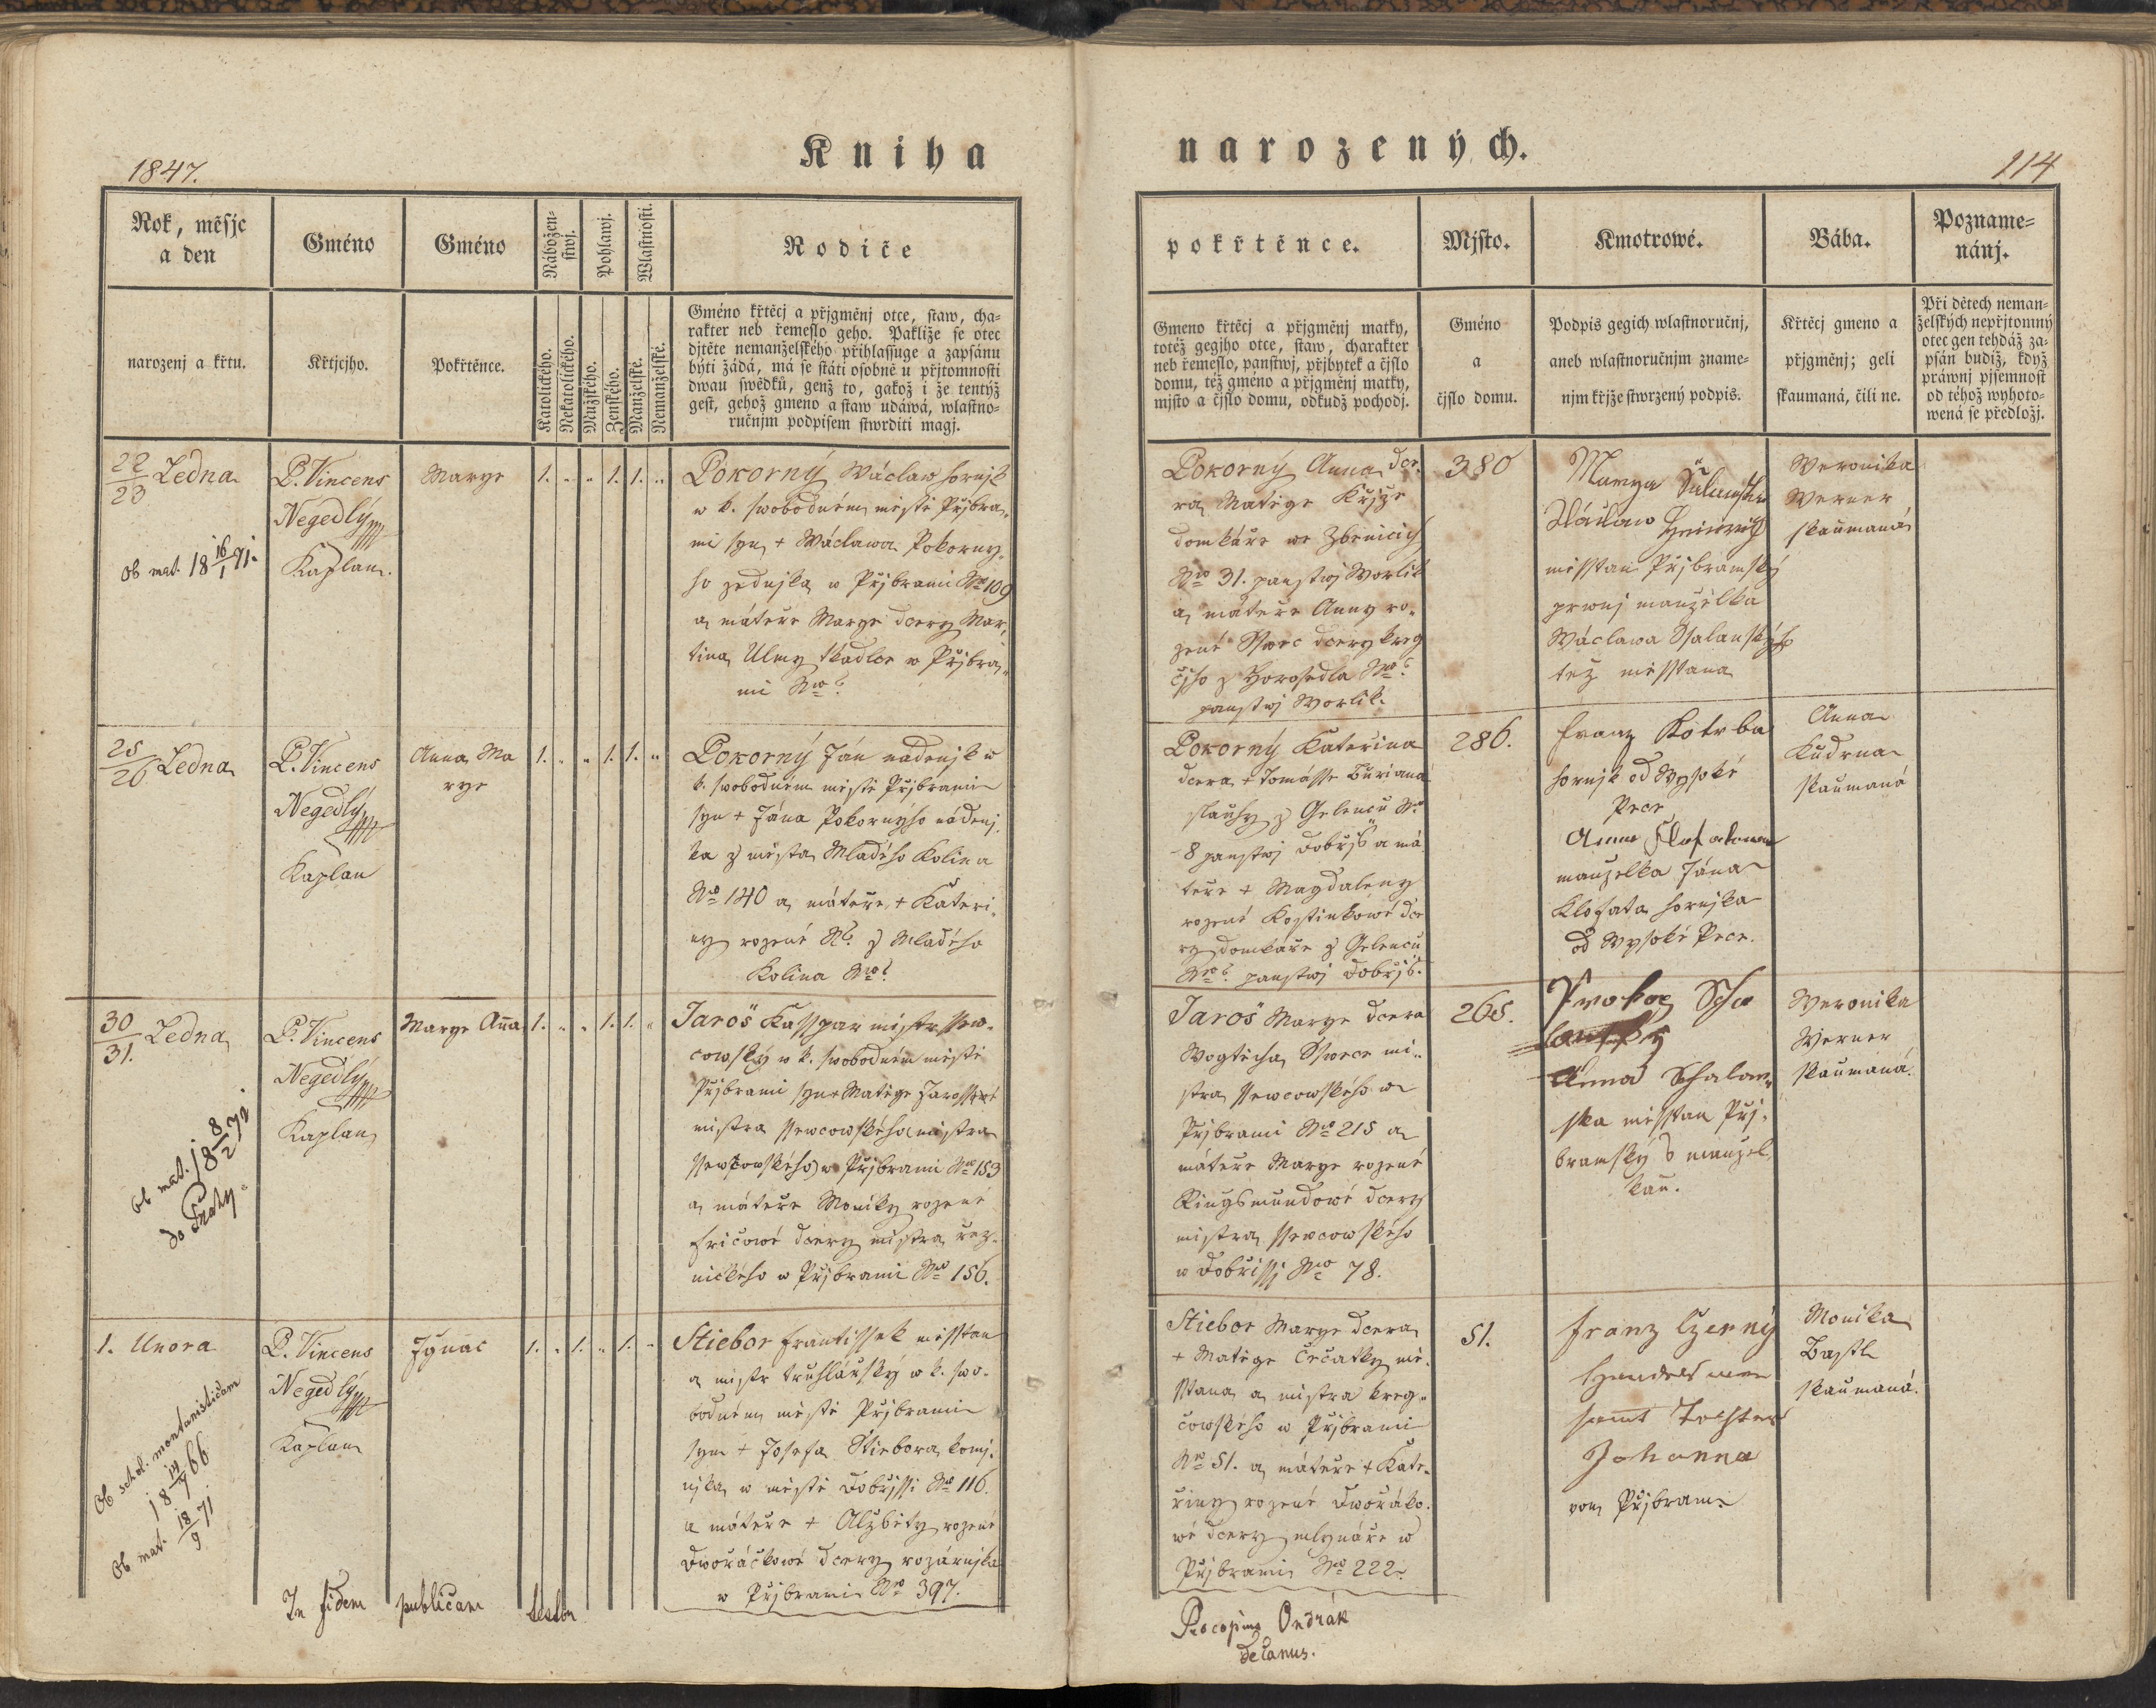 1847.
Kniha
narozených.
114
Rok, měsjc
a den
narozenj a křtu.
Gméno
Křtjcjho.
Gméno
Pokřtěnce.
Nábožen-
stwj.
Katolického.
Nekatolického.
Pohlawj.
Mužského.
Ženského.
Wlastnosti.
Manželské.
Nemanželské.
Rodiče
Gméno křtěcj a přjgměnj otce, staw, cha-
rakter neb řemeslo geho. Pakliže se otec
djtěte nemanželského přihlassuge a zapsánu
býti žádá, má se státi osobně u přjtomnosti
dwau swědků, genž to, gakož i že tentýž
gest, gehož gmeno a staw udáwá, wlastno-
ručnjm podpisem stwrditi magj.
pokřtěnce.
Gmeno křtěcj a přjgměnj matky,
totéž gegjho otce, staw, charakter
neb řemeslo, panstwj, přjbytek a čjslo
domu, též gméno a přjgměnj matky,
mjsto a čjslo domu, odkudž pochodj.
Mjsto.
Gméno
a
čjslo domu.
Kmotrowé.
Podpis gegich wlastnoručnj,
aneb wlastnoručnjm zname-
njm křjže stwrzený podpis.
Bába.
Křtěcj gmeno a
přjgměnj; geli
skaumaná, čili ne.
Pozname-
nánj.
Při dětech neman-
želských nepřjtomný
otec gen tehdáž za-
psán budiž, když
práwnj pjsemnost
od téhož wyhoto-
wená se předložj.
22/23 Ledna
P. Vincens
Negedlý
Kaplan.
Ob mat. 18 16/1 91.
Marye
1. „ „ 1. 1. „
Pokorný Wáclaw hornjk
w k. swobodném městě Přjbra„
mi syn + Wáclawa Pokorny„
ho zednjka w Přjbrami Nro 109
a mateře Marye dcery Mar„
tina Ulmy tkadlce w Přjbra„
mi Nro ?
Pokorný Anna dce„
ra Matěge Křjže
domkáře we Zbenicjch
Nro 31. panstwj Worljk
a mateře Anny ro„
zené Sswec dcery kreg
čjho z Horosedla Nro ?
panstwj Worljk.
380
Marya
Wáclaw
měsstan Přjbramský
prwnj manželka
Wáclawa Ssalanskýho
též měsstana
Weronika
Werner
skaumaná
25/26 Ledna
P. Vincens
Negedlý
Kaplan
Anna Ma
rye
1. „ „ 1. 1. „
Pokorný Ján nádenjk w
k. swobodném městě Přjbrami
syn + Jána Pokornýho nádenj„
ka z města Mladého Kolina
Nro 140 a mateře + Kateři„
ny rozené N? z Mladého
Kolina Nro ?
Pokorný Kateřina
dcera + Tomásse Buriana
slauhy z Gelenců Nro
8 panstwj Dobřjš a ma„
teře + Magdaleny
rozené Kostinkowé dce
ry domkáře z Gelenců
Nro ? panstwj Dobřjš.
286.
Franz Kotrba
hornjk od Wysoké
Pece
Anna
manželka Jána
Klofata hornjka
od Wysoké Pece.
Anna
Kudrna
skaumaná
30/31. Ledna
P. Vincens
Negedlý
Kaplan
Ob mat. 18 8/2 72
do Prahy.
Marye Anna
1. „ „ 1. 1. „
Jaroš Kasspar mistr ssew„
cowský w k. swobodném městě
Přjbrami syn + Matěge Jarosse
mistra ssewcowského mistra
ssewcowského w Přjbrami Nro 153
a mateře Moniky rozené
Fričowé dcery mistra řez„
nického w Přjbrami Nro 156.
Jaroš Marye dcera
Wogtěcha Sswece mi„
stra ssewcowského w
Přjbrami Nro 215 a
mateře Marye rozené
Kingsmundowé dcery
mistra ssewcowského
w Dobřissj Nro 78.
265.
Prokop Scha
lansky
Anna Schalan„
ska měsstan Přj„
bramský s manžel„
kau.
Weronika
Werner
skaumaná.
1. Unora
P. Vincens
Negedlý
Kaplan
Ob schol. montanisticam
18 14/7 66
Ob mat. 18/9 71
Ignac
1. „ 1. „ 1. „
Stiebor Frantissek měsstan
a mistr truhlářský w k. swo„
bodném městě Přjbrami
syn + Josefa Stiebora komj„
njka w městě Dobřissi Nro 116.
a mateře + Alžběty rozené
Dwořáčkowé dcery
w Přjbrami Nro 397.
Stiebor Marye dcera
+ Matěge Čečatky mě„
sstana a mistra kreg„
čowského w Přjbrami
Nro 51. a mateře + Kate„
řiny rozené Dwořáko„
wé dcery mlynáře w
Přjbrami Nro 222.
51.
Franz Czerný
Handelsman
sammt Tochter
Johanna
von Přjbram
Monika
Bastl
skaumaná.
In fidem publicam testor
Procopius Ondrák
decanus.